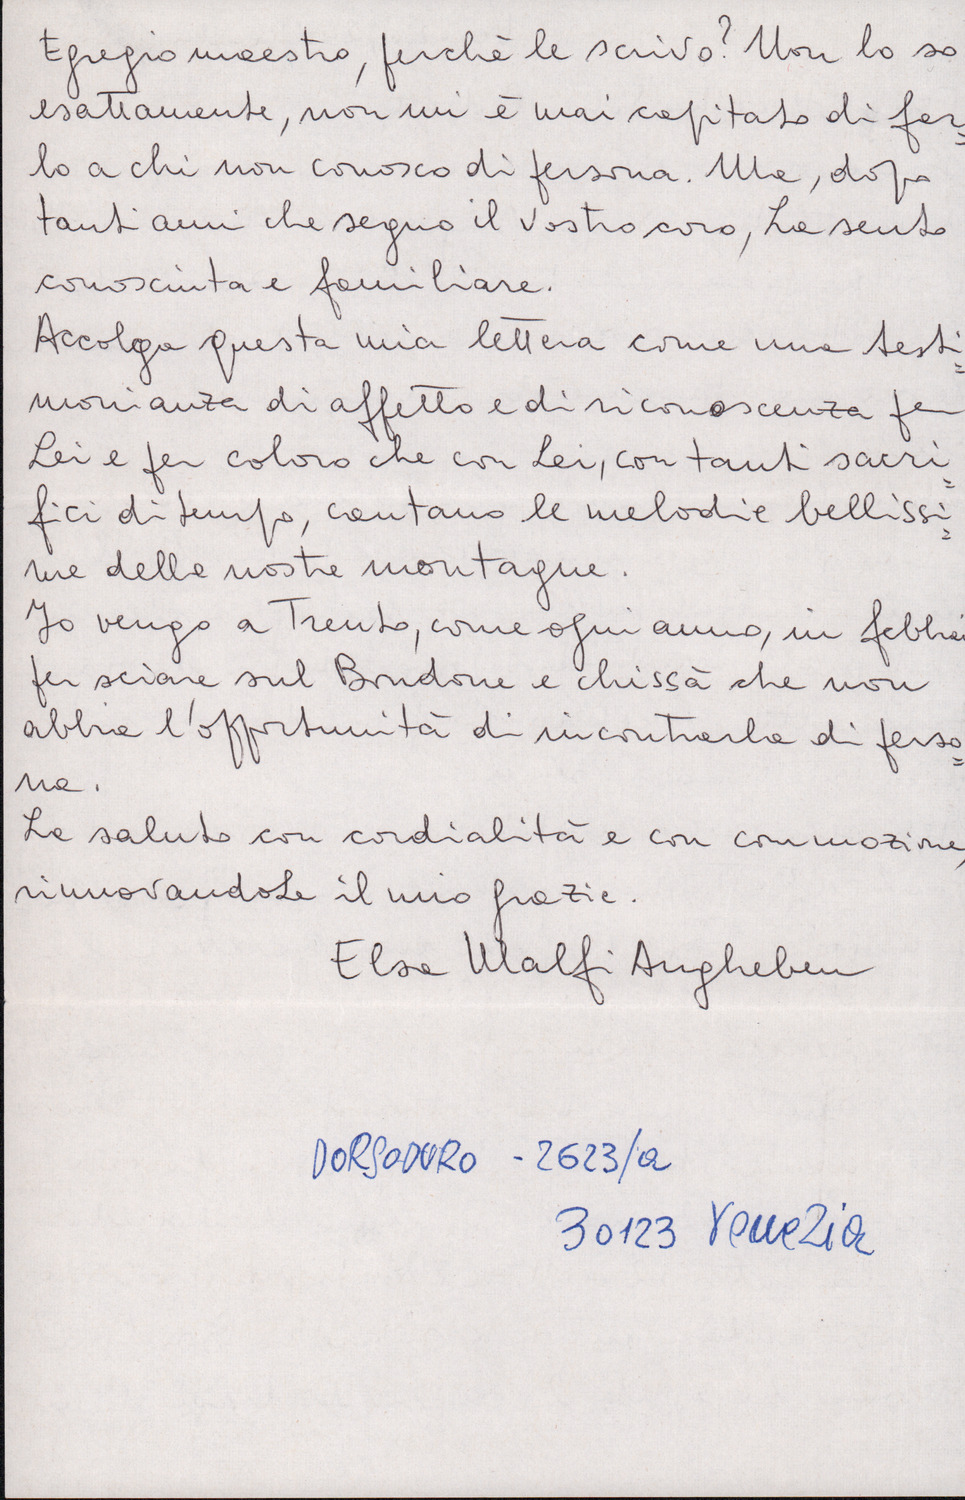 Egregio maestro, perchè le scrivo? Non lo so
esattamente, non mi è mai capitato di far=
lo a chi non conosco di persona. Ma, dopo
tanti anni che seguo il vostro coro, La sento
conosciuta e familiare.
Accolga questa mia lettera come una testi=
monianza di affetto e di riconoscenza per
Lei e per coloro che con Lei, con tanti sacri=
fici di tempo, cantano le melodie bellissi=
me delle nostre montagne.
Io vengo a Trento, come ogni anno, in febbrai
per sciare sul Bondone e chissà che non
abbia l'opportunità di incontrarla di perso=
na.
La saluto con cordialità e con commozione,
rinnovandoLe il mio grazie.
Elsa Malfi Angheben
DORSODURO - 2623/a
30123 Venezia